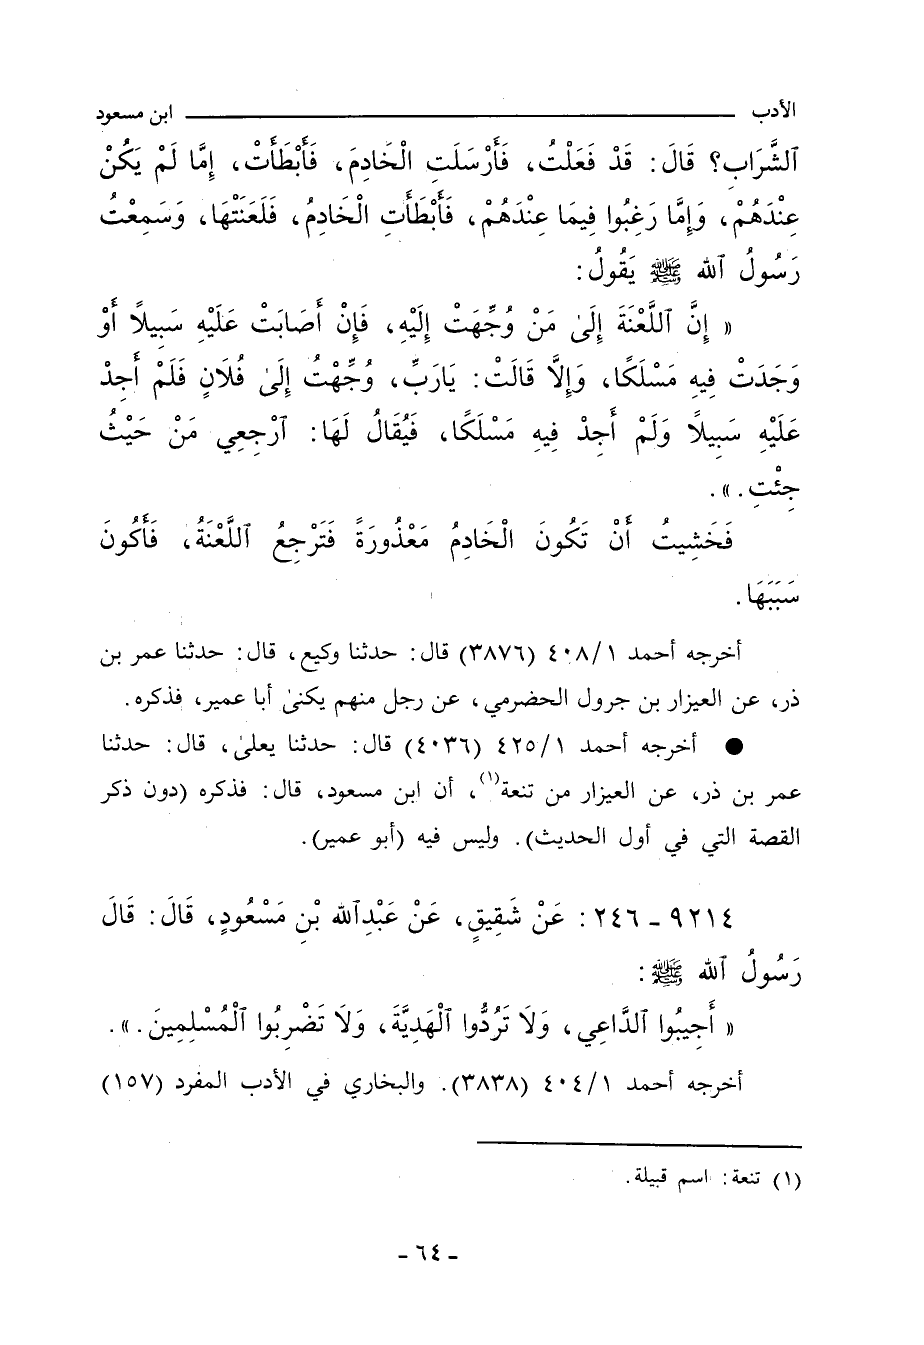 الأدب ابن مسعود
ٱلشَّرَابِ؟ قَالَ: قَدْ فَعَلْتُ، فَأَرْسَلَتِ الْخَادِمَ، فَأَبْطَأَتْ، إِمَّا لَمْ يَكُنْ
عِنْدَهُمْ، وَإِمَّا رَغِبُوا فِيمَا عِنْدَهُمْ، فَأَبْطَأَتِ الْخَادِمُ، فَلَعَنَتْهَا، وَسَمِعْتُ
رَسُولَ ٱللهِ ﷺ يَقُولُ:
« إِنَّ ٱللَّعْنَةَ إِلَىٰ مَنْ وُجِّهَتْ إِلَيْهِ، فَإِنْ أَصَابَتْ عَلَيْهِ سَبِيلًا أَوْ
وَجَدَتْ فِيهِ مَسْلَكًا، وَإِلَّا قَالَتْ: يَارَبِّ، وُجِّهْتُ إِلَىٰ فُلَانٍ فَلَمْ أَجِدْ
عَلَيْهِ سَبِيلًا وَلَمْ أَجِدْ فِيهِ مَسْلَكًا، فَيُقَالُ لَهَا: ٱرْجِعِي مَنْ حَيْثُ
جِئْتِ. ».
فَخَشِيتُ أَنْ تَكُونَ الْخَادِمُ مَعْذُورَةً فَتَرْجِعُ ٱللَّعْنَةُ، فَأَكُونَ
سَبَبَهَا.
أخرجه أحمد ٤٠٨/١ (٣٨٧٦) قال: حدثنا وكيع، قال: حدثنا عمر بن
ذر، عن العيزار بن جرول الحضرمي، عن رجل منهم يكنىٰ أبا عمير، فذكره.
● أخرجه أحمد ٤٢٥/١ (٤٠٣٦) قال: حدثنا يعلىٰ، قال: حدثنا
عمر بن ذر، عن العيزار من تنعة(١)، أن ابن مسعود، قال: فذكره (دون ذكر
القصة التي في أول الحديث). وليس فيه (أبو عمير).
٩٢١٤ - ٢٤٦: عَنْ شَقِيقٍ، عَنْ عَبْدِٱللهِ بْنِ مَسْعُودٍ، قَالَ: قَالَ
رَسُولُ ٱللهِ ﷺ:
« أَجِيبُوا ٱلدَّاعِي، وَلَا تَرُدُّوا ٱلْهَدِيَّةَ، وَلَا تَضْرِبُوا ٱلْمُسْلِمِينَ. ».
أخرجه أحمد ٤٠٤/١ (٣٨٣٨). والبخاري في الأدب المفرد (١٥٧)
(١) تنعة: اسم قبيلة.
- ٦٤ -